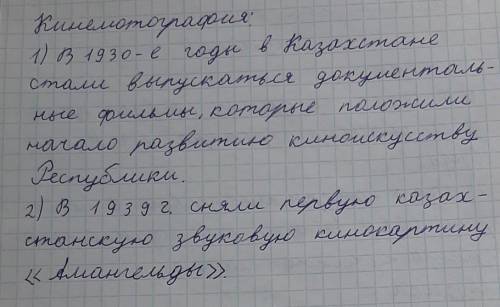 Кинемотография:
1) В 1930-е годы в Казахстане
стали выпускаться документаль-
ные фильмы, которые положили
начало развитию киноискусству
Республики.
2) В 1939г. сняли первую казах-
станскую звуковую кинокартину
«Амангельды».